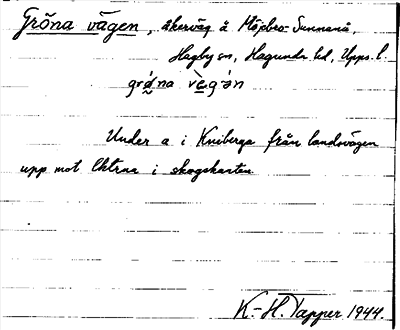 Gröna vägen, åkerväg å Möjbro-Sunnanå,
Hagby sn, Hagunda hd, Upps. l.
Under a i Kniberga från landsvägen
upp mot lktrna i skogskanten
K.-H. Tapper 1944.